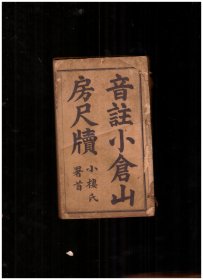 音註小倉山
房尺牘
小樓氏
署首